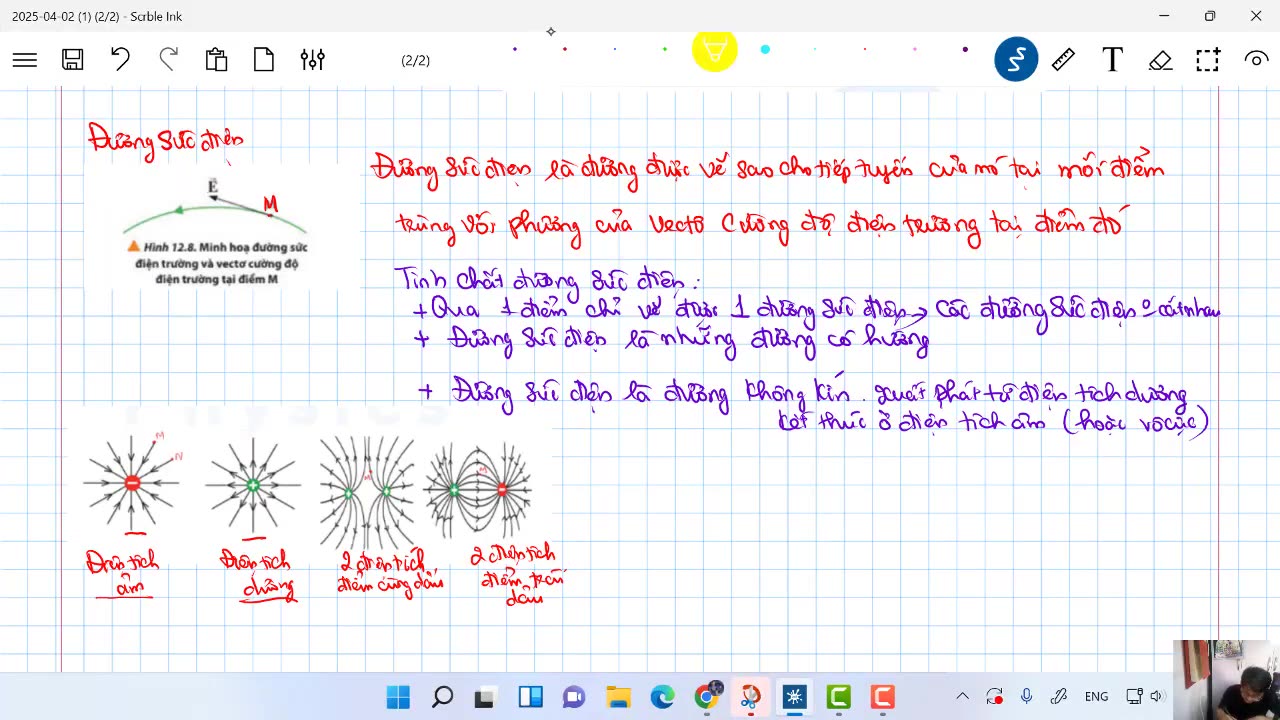 2025-04-02 (1) (2/2) - Scrble Ink
(2/2)
T
Đường sức điện
E
M
Hình 12.8. Minh hoạ đường sức
điện trường và vectơ cường độ
điện trường tại điểm M
Đường sức điện là đường được vẽ sao cho tiếp tuyến của nó tại mỗi điểm
trùng với phương của vectơ cường độ điện trường tại điểm đó
Tính chất đường sức điện:
+ Qua 1 điểm chỉ vẽ được 1 đường sức điện → các đường sức điện o cắt nhau
+ Đường sức điện là những đường có hướng
+ Đường sức điện là đường không kín. xuất phát từ điện tích dương
kết thúc ở điện tích âm (hoặc vô cực)
Physics
M
N
M
M
Điện tích
âm
Điện tích
dương
2 điện tích
điểm cùng dấu
2 điện tích
điểm trái
dấu
ENG